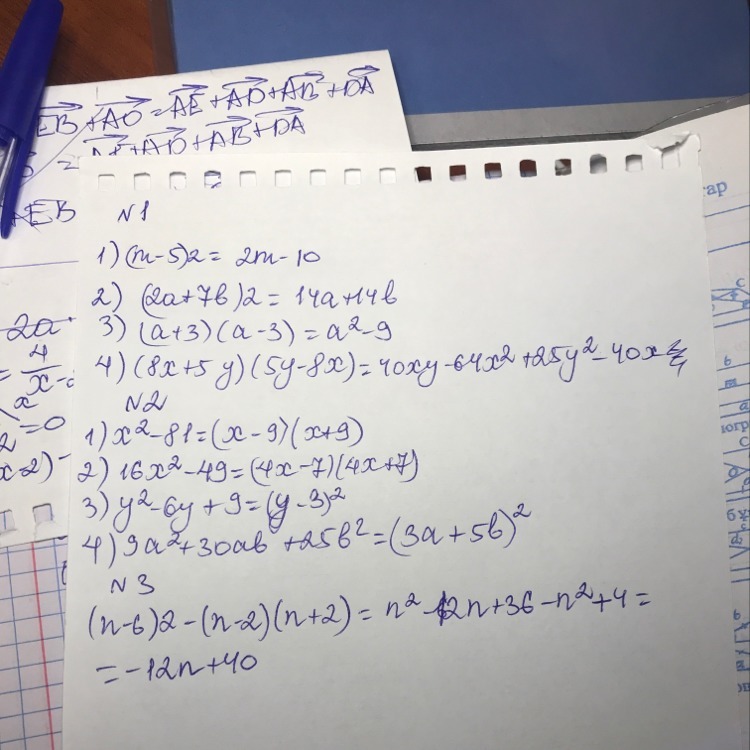 EB + AO = AE + AD + AB + DA
= AE + AD + AB + DA
AEB
N1
1) (m-5)2 = 2m-10
2) (2a+7b)2 = 14a+14b
3) (a+3)(a-3) = a²-9
4) (8x+5y)(5y-8x) = 40xy-64x²+25y²-40x
N2
1) x²-81=(x-9)(x+9)
2) 16x²-49=(4x-7)(4x+7)
3) y²-6y+9=(y-3)²
4) 9a²+30ab+25b²=(3a+5b)²
N3
(n-6)2-(n-2)(n+2) = n²-12n+36-n²+4=
= -12n+40
2a
= 4
x
=0
x-2)